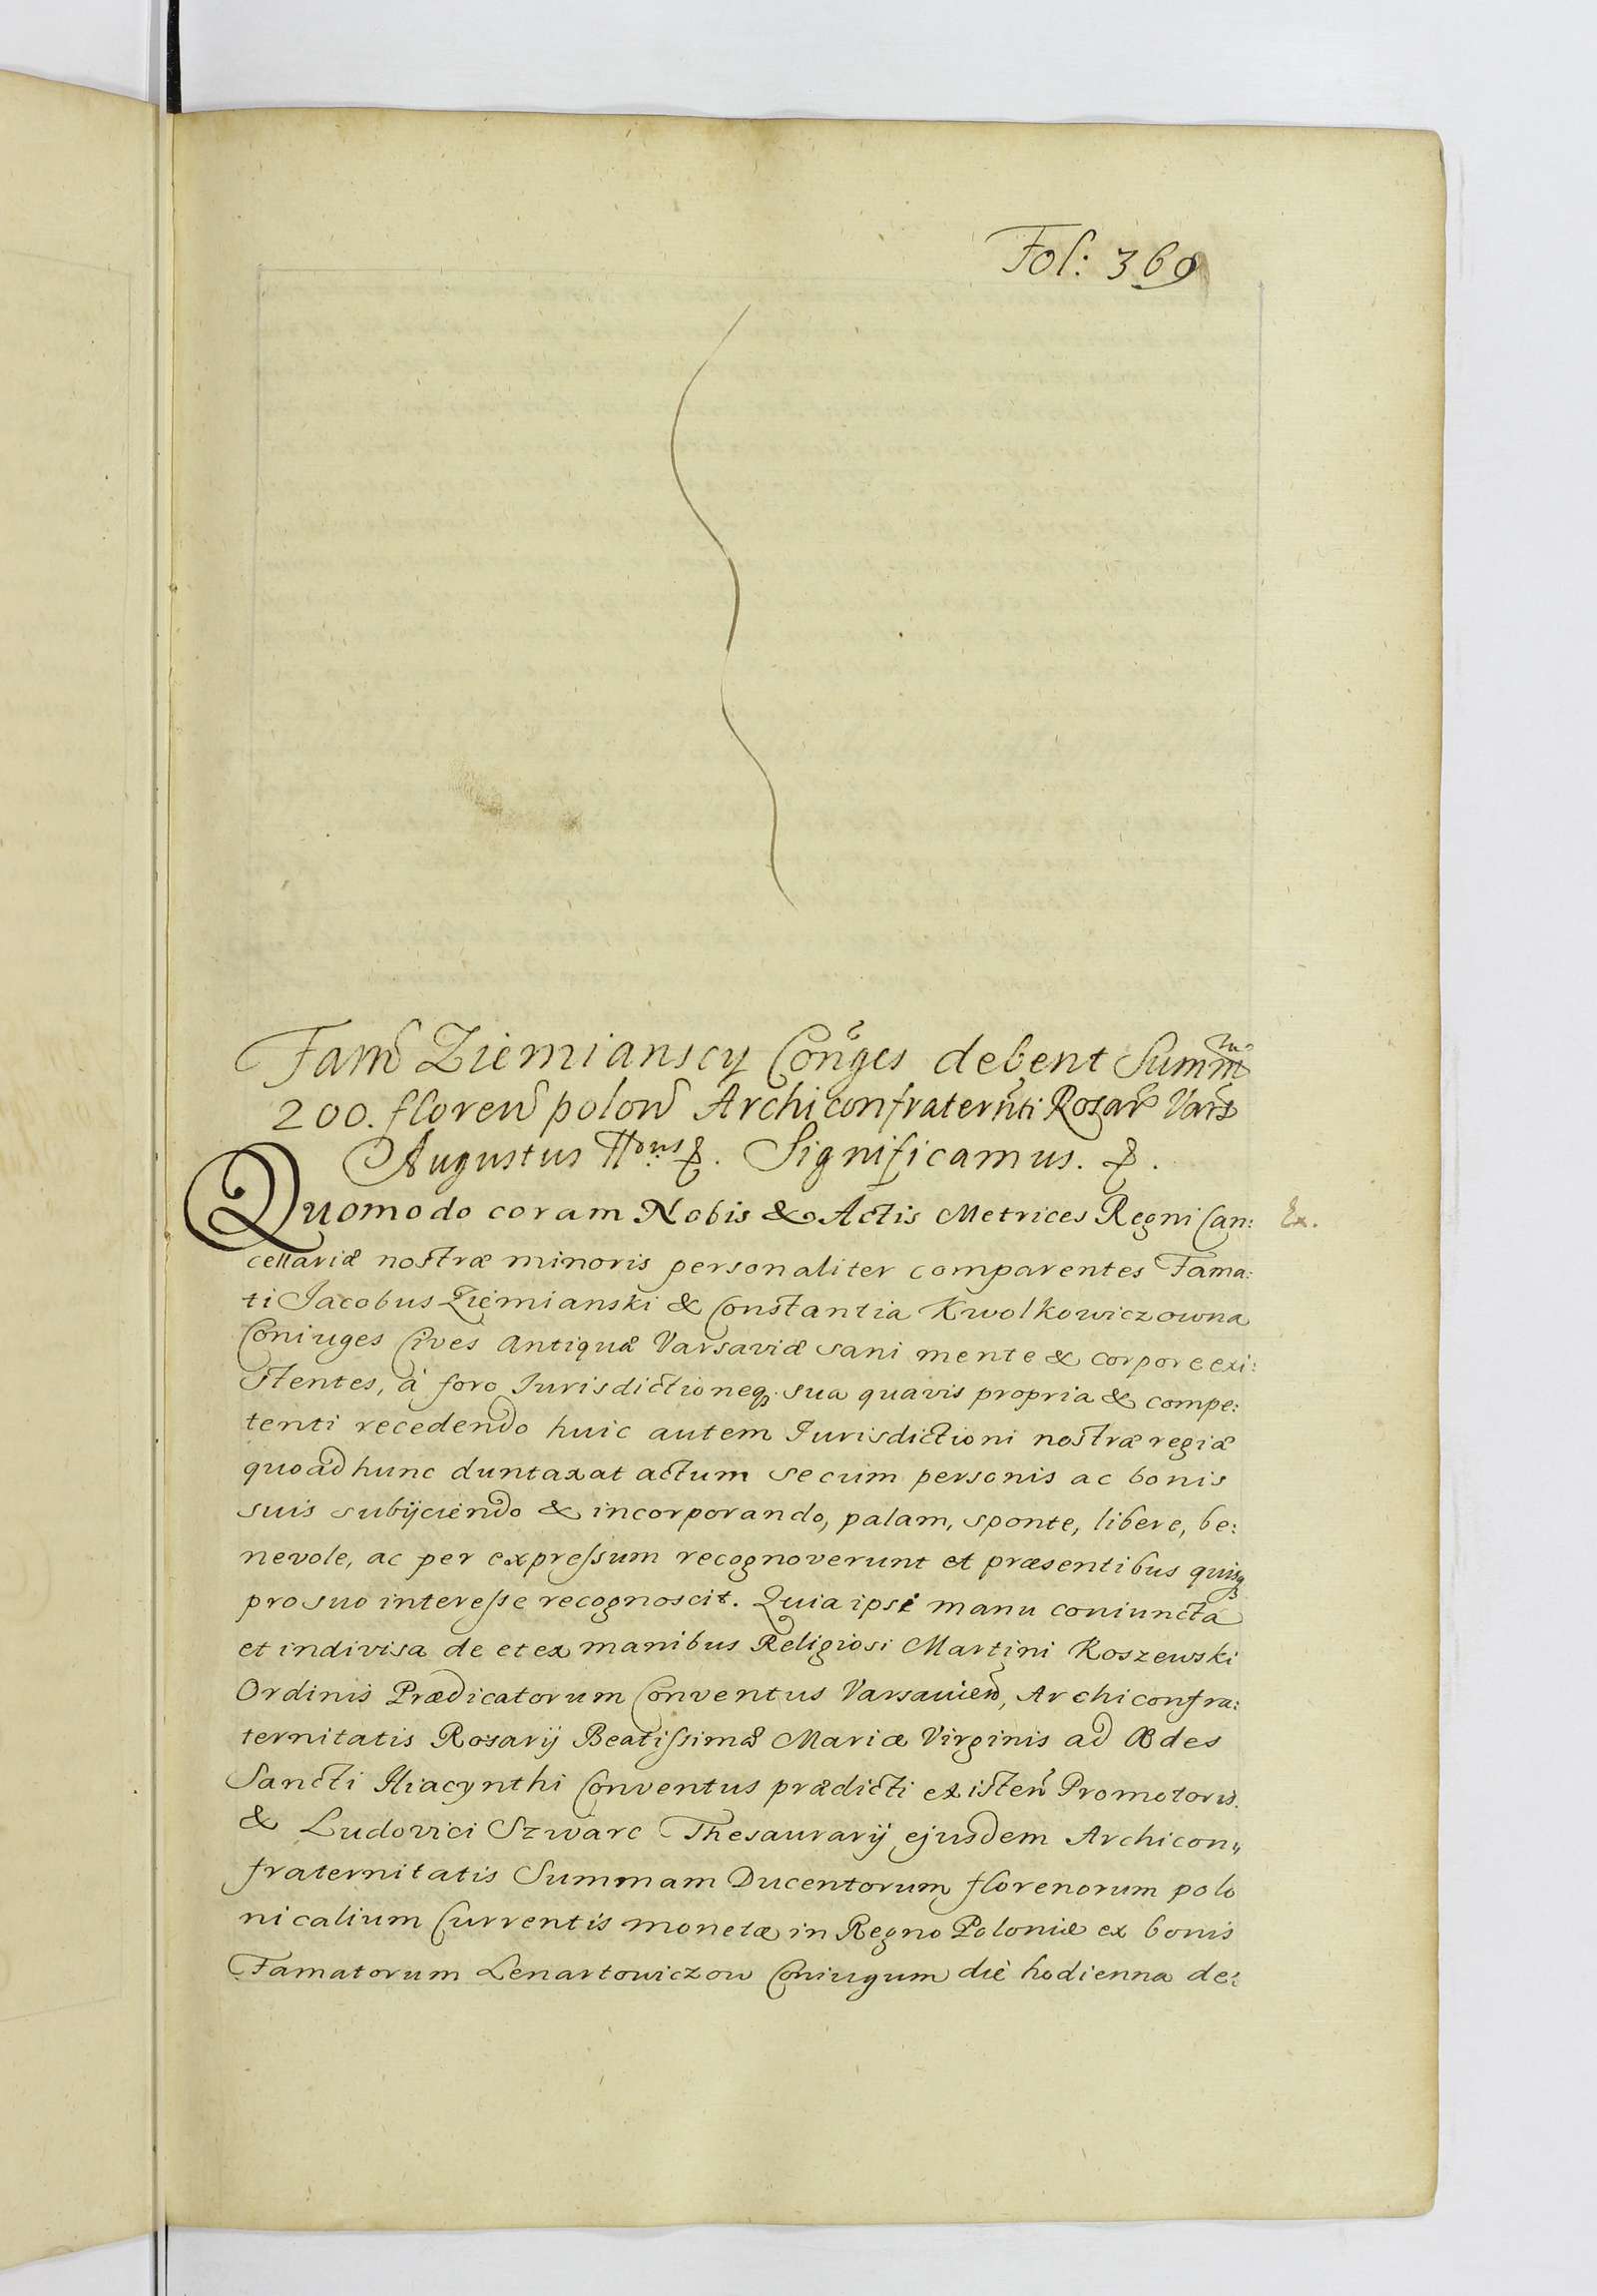 Fol: 369
Fam Ziemianscy Conges debent Summ
200. floren polon Archiconfraternti Rosar Vars
Augustus IIdus &. Significamus. &.
Quomodo coram Nobis & Actis Metrices Regni Can:
Ex.
cellariæ nostræ minoris personaliter comparentes Fama:
ti Jacobus Ziemianski & Constantia Kwolkowiczowna
Coniuges Cives Antiquæ Varsaviæ sani mente & corpore exi:
stentes, à foro Jurisdictioneq. sua quavis propria & compe:
tenti recedendo huic autem Jurisdictioni nostræ regiæ
quoad hunc duntaxat actum se cum personis ac bonis
suis subijciendo & incorporando, palam, sponte, libere, be:
nevole, ac per expressum recognoverunt et præsentibus quisq
pro suo interesse recognoscit. Quia ipsi manu coniuncta
et indivisa de et ex manibus Religiosi Martini Koszewski
Ordinis Prædicatorum Conventus Varsavien, Archiconfra:
ternitatis Rosarij Beatissimæ Mariæ Virginis ad Ædes
Sancti Hiacynthi Conventus prædicti existen Promotoris.
& Ludovici Szwarc Thesaurarij ejusdem Archicon„
fraternitatis Summam Ducentorum florenorum polo
nicalium Currentis monetæ in Regno Poloniæ ex bonis
Famatorum Lenartowiczow Coniugum die hodienna de: